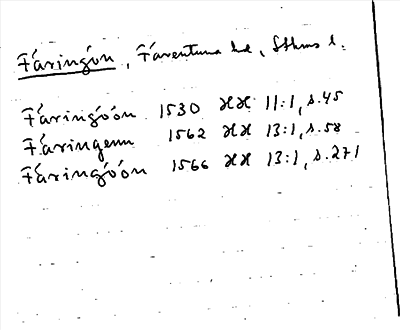 Fáringón, Färentuna hd, Sthms l.
Fáringóón 1530 HH 11:1, s. 45
Fáringenn 1562 HH 13:1, s. 58
Fáringóón 1566 HH 13:1, s. 271